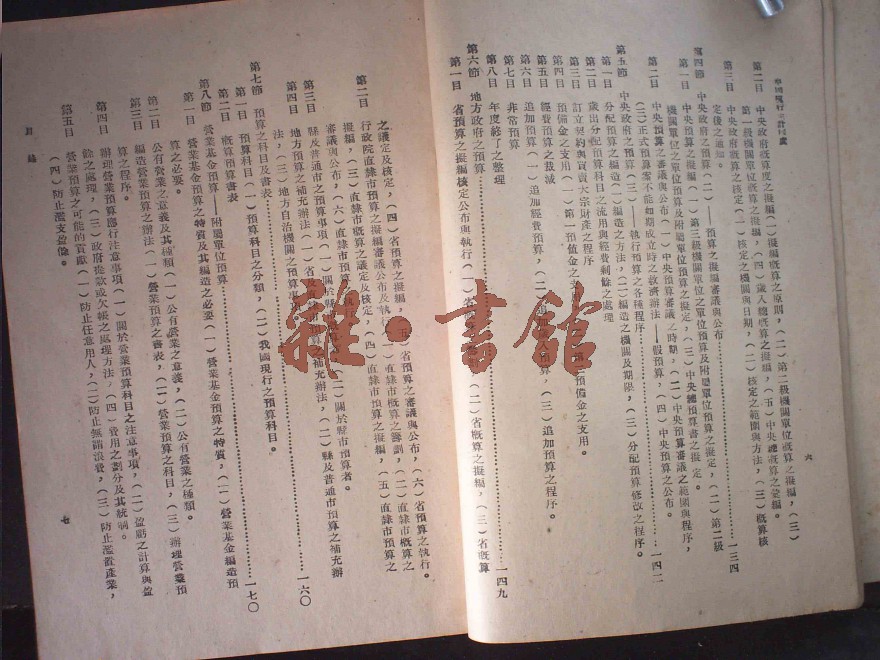 六
第二目 中央政府概算度之擬編(一)擬編概算之原則,(二)第二級機關單位概算之擬編,(三)
第一級機關單位概算之擬編,(四)歲入總概算之擬編,(五)中央總概算之彙編。
第三目 中央政府概算之核定(一)核定之機關與日期,(二)核定之範圍與方法,(三)概算核
定後之通知。
第四節 中央政府之預算(二)——預算之擬編審議與公布……一三四
第一目 中央預算之擬定(一)第三級機關單位之單位預算及附屬單位預算之擬定,(二)第二級
機關單位之單位預算及附屬單位預算之擬定,(三)中央總預算書之擬定。
第二目 中央預算之審議與公布(一)中央預算審議之時期,(二)中央預算審議之範圍與程序,
(三)正式預算案不能如期成立時之救濟辦法——假預算,(四)中央預算之公布。
第五節 中央政府之預算(三)——執行預算之各種程序……一四二
第一目 分配預算之編造(一)編造之方法,(二)編造之機關及期限,(三)分配預算修改之程序。
第二目 歲出分配預算科目之流用與經費剩餘之處理
第三目 訂立契約與買賣大宗財產之程序
第四目 預備金之支用(一)第一預備金之支用,(二)第二預備金之支用。
第五目 經費預算之裁減
第六目 追加預算(一)追加經費預算,(二)追加歲入預算,(三)追加預算之程序。
第七目 非常預算
第八目 年度終了之整理
第六節 地方政府之預算……一四九
第一目 省預算之擬編核定公布與執行(一)省概算之籌劃,(二)省概算之擬編,(三)省概算
之議定及核定,(四)省預算之擬編,(五)省預算之審議與公布,(六)省預算之執行。
第二目 行政院直隸市預算之擬編審議公布及執行(一)直隸市概算之籌劃,(二)直隸市概算之
擬編,(三)直隸市概算之議定及核定,(四)直隸市預算之擬編,(五)直隸市預算之
審議與公布,(六)直隸市預算之執行。
第三目 縣及普通市之預算事項(一)關於縣預算者,(二)關於縣市預算者。
第四目 地方預算之補充辦法(一)省及直隸市預算之補充辦法,(二)縣及普通市預算之補充辦
法,(三)地方自治機關之預算事項。……一六〇
第七節 預算之科目及書表
第一目 預算科目(一)預算科目之分類,(二)我國現行之預算科目。
第二目 概算預算書表……一七〇
第八節 營業基金預算——附屬單位預算
第一目 營業基金預算之特質及其編造之必要(一)營業基金預算之特質,(二)營業基金編造預
算之必要。
第二目 公有營業之意義及其種類(一)公有營業之意義,(二)公有營業之種類。
第三目 編造營業預算之辦法(一)營業預算之書表,(二)營業預算之科目,(三)辦理營業預
算之程序。
第四目 辦理營業預算應行注意事項(一)關於營業預算科目之注意事項,(二)盈虧之計算與盈
餘之處理,(三)政府撥款或欠帳之處理方法,(四)費用之劃分及其統馭。
第五目 營業預算之可能的貢獻(一)防止任意用人,(二)防止無謂浪費,(三)防止濫置產業,
(四)防止濫支盈餘。
目錄
七
雜·書館